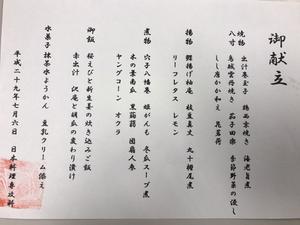 御献立
焼物 出汁巻玉子 鶏西京焼き 海老旨煮
八寸 鳥城雲丹焼き 茄子田楽 季節野菜の浸し
しし唐かか和え 花茗荷
揚物 鰹揚げ袖枝豆真丈 丸十檀尾煮
リーフレタス レモン
煮物 穴子八幡巻 姫がんも 冬瓜スープ煮
木の葉南瓜 黒蒟蒻 団扇人参
ヤングコーン オクラ
御飯 桜えびと新生姜の炊き込みご飯
赤出汁 沢庵と胡瓜の変わり漬け
水菓子 抹茶水ようかん 豆乳クリーム添え
平成二十九年七月六日 日本料理専攻科